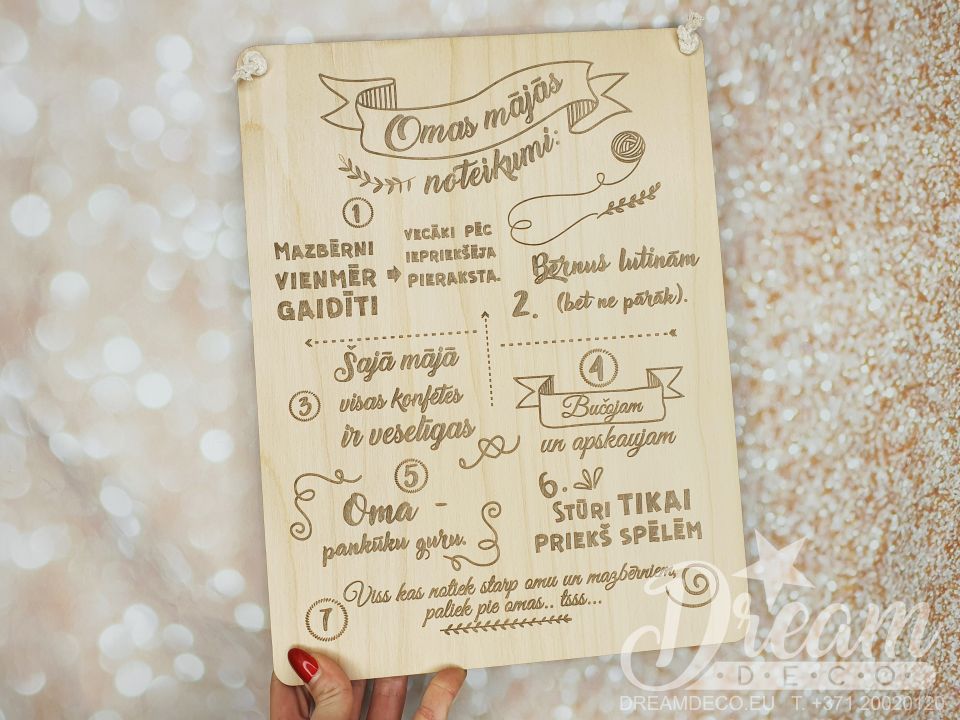 Omas mājās
noteikumi:
1
MAZBĒRNI
VIENMĒR
GAIDĪTI
VECĀKI PĒC
IEPRIEKŠĒJA
PIERAKSTA.
Bērnus lutinām
2. (bet ne pārāk).
Šajā mājā
3 visas konfetes
ir veselīgas
4
Bučojam
un apskaujam
5
Oma -
pankūku guru.
6.
STŪRI TIKAI
PRIEKŠ SPĒLĒM
7 Viss kas notiek starp omu un mazbērniem,
paliek pie omas.. tsss...
Dream
DECO
DREAMDECO.EU T. +371 20020120